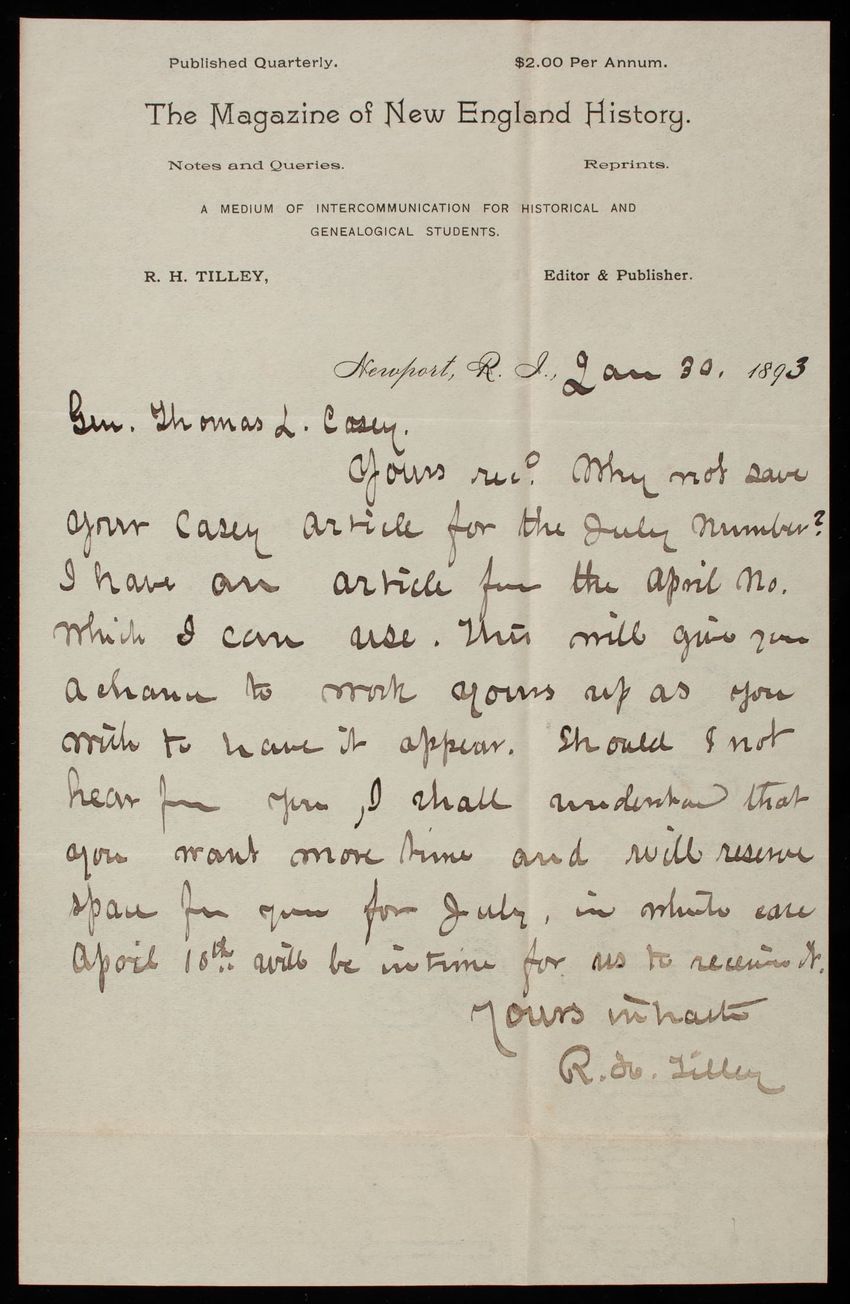 Published Quarterly. $2.00 Per Annum.
The Magazine of New England History.
Notes and Queries. Reprints.
A MEDIUM OF INTERCOMMUNICATION FOR HISTORICAL AND
GENEALOGICAL STUDENTS.
R. H. TILLEY, Editor & Publisher.
Newport, R. I., Jan 30. 1893
Gen. Thomas L. Casey.
Yours recd. Why not save
your Casey article for the July number?
I have an article for the April No.
which I can use. This will give you
a chance to work yours up as you
wish to have it appear. Should I not
hear from you, I shall understand that
you want more time and will reserve
space for you for July, in which case
April 10th will be in time for us to receive it.
Yours in haste
R. H. Tilley